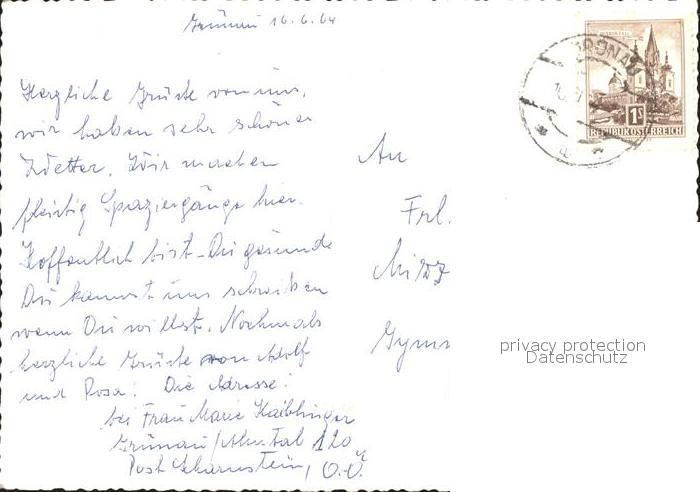 Grünau 16.6.64
Herzliche Grüße von uns,
wir haben sehr schönes
Wetter. Wir machen
fleißig Spaziergänge hier.
Hoffentlich bist Du gesund
Du kannst uns schreiben
wenn Du willst. Nochmals
herzliche Grüße von Adolf
und Rosa! Die Adresse!
bei Frau Marie Kaiblinger
Grünau/Almtal 120
Post Scharnstein, O.Ö.
GRÜNAU
1S
REPUBLIK ÖSTERREICH
An
Frl.
Gymn
privacy protection
Datenschutz